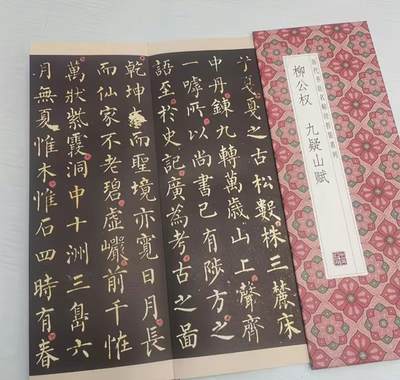 戛戛之古松數株三麓床
中丹鍊九轉萬歲山上聲齊
一嘑所以尚書已有陟方之
語至於史記廣為考古之啚
乾坤而聖境亦寬日月長
而仙家不老碧虛巖前千惟
萬狀紫霞洞中十洲三島六
月無夏惟木惟石四時有春
柳公权 九疑山赋